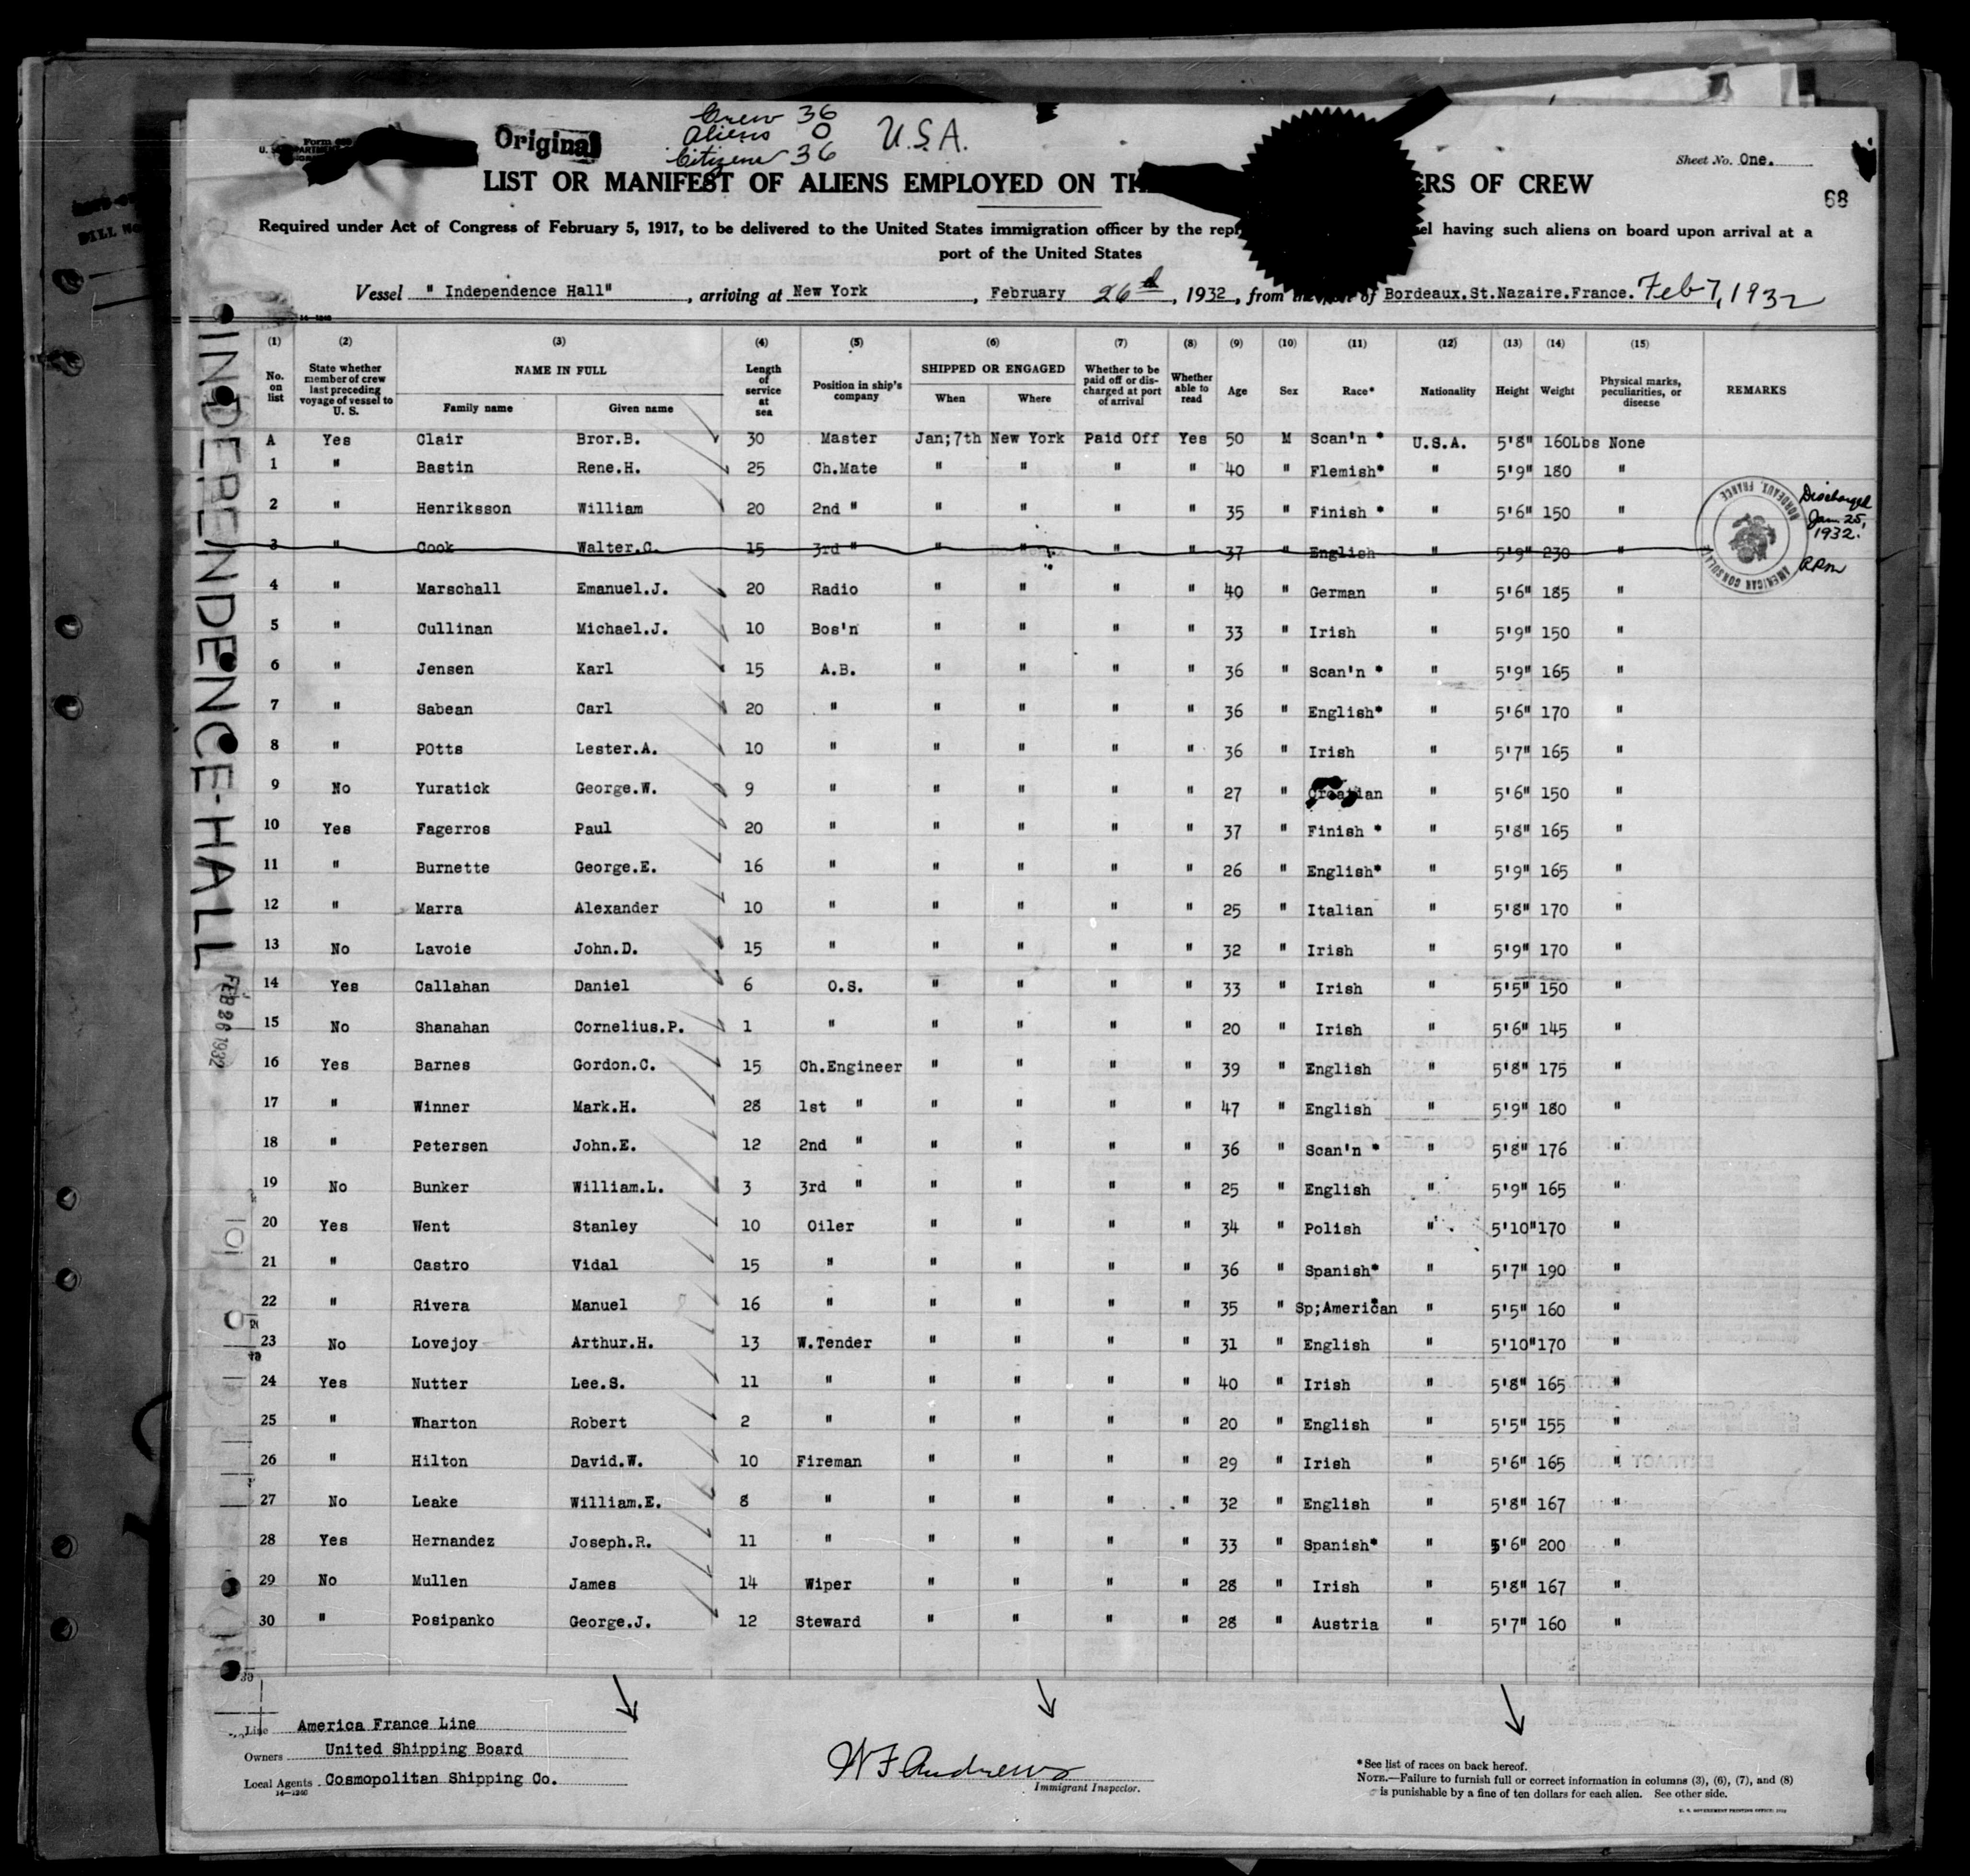 Crew 36
Aliens 0
Citizens 36
U.S.A.
Original
Sheet No. One.
68
LIST OR MANIFEST OF ALIENS EMPLOYED ON TH ERS OF CREW
Required under Act of Congress of February 5, 1917, to be delivered to the United States immigration officer by the having such aliens on board upon arrival at a
port of the United States
Vessel " Independence Hall" , arriving at New York , February 26 d , 1932, from of Bordeaux.St.Nazaire.France. Feb 7, 1932
(1) (2) (3) (4) (5) (6) (7) (8) (9) (10) (11) (12) (13) (14) (15)
No. on list State whether member of crew last preceding voyage of vessel to U. S. NAME IN FULL Family name Given name Length of service at sea Position in ship's company SHIPPED OR ENGAGED When Where Whether to be paid off or discharged at port of arrival Whether able to read Age Sex Race* Nationality Height Weight Physical marks, peculiarities, or disease REMARKS
A Yes Clair Bror.B. 30 Master Jan;7th New York Paid Off Yes 50 M Scan'n * U.S.A. 5'8" 160Lbs None
1 " Bastin Rene.H. 25 Ch.Mate " " " " 40 " Flemish* " 5'9" 180 "
2 " Henriksson William 20 2nd " " " " " 35 " Finish * " 5'6" 150 "
3 " Cook Walter.C. 15 3rd " " " " " 37 " English " 5'9" 230 "
AMERICAN CONSULATE BORDEAUX, FRANCE
Discharged
Jan. 25,
1932.
RPM
4 " Marschall Emanuel.J. 20 Radio " " " " 40 " German " 5'6" 185 "
5 " Cullinan Michael.J. 10 Bos'n " " " " 33 " Irish " 5'9" 150 "
6 " Jensen Karl 15 A.B. " " " " 36 " Scan'n * " 5'9" 165 "
7 " Sabean Carl 20 " " " " " 36 " English* " 5'6" 170 "
8 " POtts Lester.A. 10 " " " " " 36 " Irish " 5'7" 165 "
9 No Yuratick George.W. 9 " " " " " 27 " Croatian " 5'6" 150 "
10 Yes Fagerros Paul 20 " " " " " 37 " Finish * " 5'8" 165 "
11 " Burnette George.E. 16 " " " " " 26 " English* " 5'9" 165 "
12 " Marra Alexander 10 " " " " " 25 " Italian " 5'8" 170 "
13 No Lavoie John.D. 15 " " " " " 32 " Irish " 5'9" 170 "
14 Yes Callahan Daniel 6 O.S. " " " " 33 " Irish " 5'5" 150 "
15 No Shanahan Cornelius.P. 1 " " " " " 20 " Irish " 5'6" 145 "
16 Yes Barnes Gordon.C. 15 Ch.Engineer " " " " 39 " English " 5'8" 175 "
17 " Winner Mark.H. 28 1st " " " " " 47 " English " 5'9" 180 "
18 " Petersen John.E. 12 2nd " " " " " 36 " Scan'n * " 5'8" 176 "
19 No Bunker William.L. 3 3rd " " " " " 25 " English " 5'9" 165 "
20 Yes Went Stanley 10 Oiler " " " " 34 " Polish " 5'10" 170 "
21 " Castro Vidal 15 " " " " " 36 " Spanish* " 5'7" 190 "
22 " Rivera Manuel 16 " " " " " 35 " Sp;American * " 5'5" 160 "
23 No Lovejoy Arthur.H. 13 W.Tender " " " " 31 " English " 5'10" 170 "
24 Yes Nutter Lee.S. 11 " " " " " 40 " Irish " 5'8" 165 "
25 " Wharton Robert 2 " " " " " 20 " English " 5'5" 155 "
26 " Hilton David.W. 10 Fireman " " " " 29 " Irish " 5'6" 165 "
27 No Leake William.E. 8 " " " " " 32 " English " 5'8" 167 "
28 Yes Hernandez Joseph.R. 11 " " " " " 33 " Spanish* " 5'6" 200 "
29 No Mullen James 14 Wiper " " " " 28 " Irish " 5'8" 167 "
30 " Posipanko George.J. 12 Steward " " " " 28 " Austria " 5'7" 160 "
30
INDEPENDENCE-HALL
FEB 26 1932
Line America France Line
Owners United Shipping Board
Local Agents Cosmopolitan Shipping Co.
14—1240
W F Andrews
Immigrant Inspector.
*See list of races on back hereof.
NOTE.—Failure to furnish full or correct information in columns (3), (6), (7), and (8)
is punishable by a fine of ten dollars for each alien. See other side.
U. S. GOVERNMENT PRINTING OFFICE: